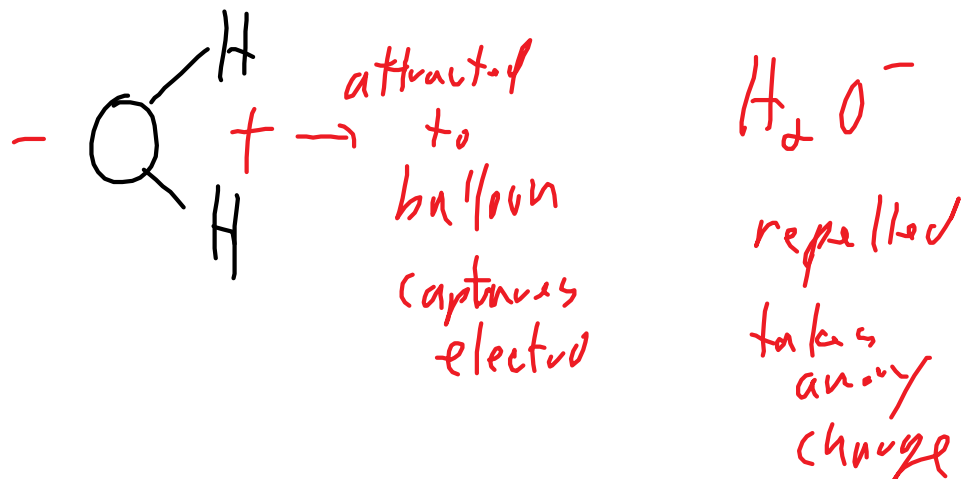 H
- O + → attracted
H
to
balloon
captures
electro
H2O-
repelled
takes
away
charge